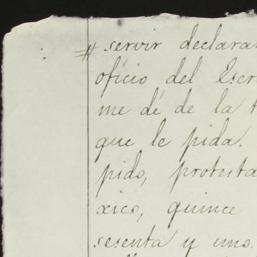 # servir declarar
oficio del Escri
me dé de la
que le pida.
pido, protesta
xico, quince
sesenta y uno.